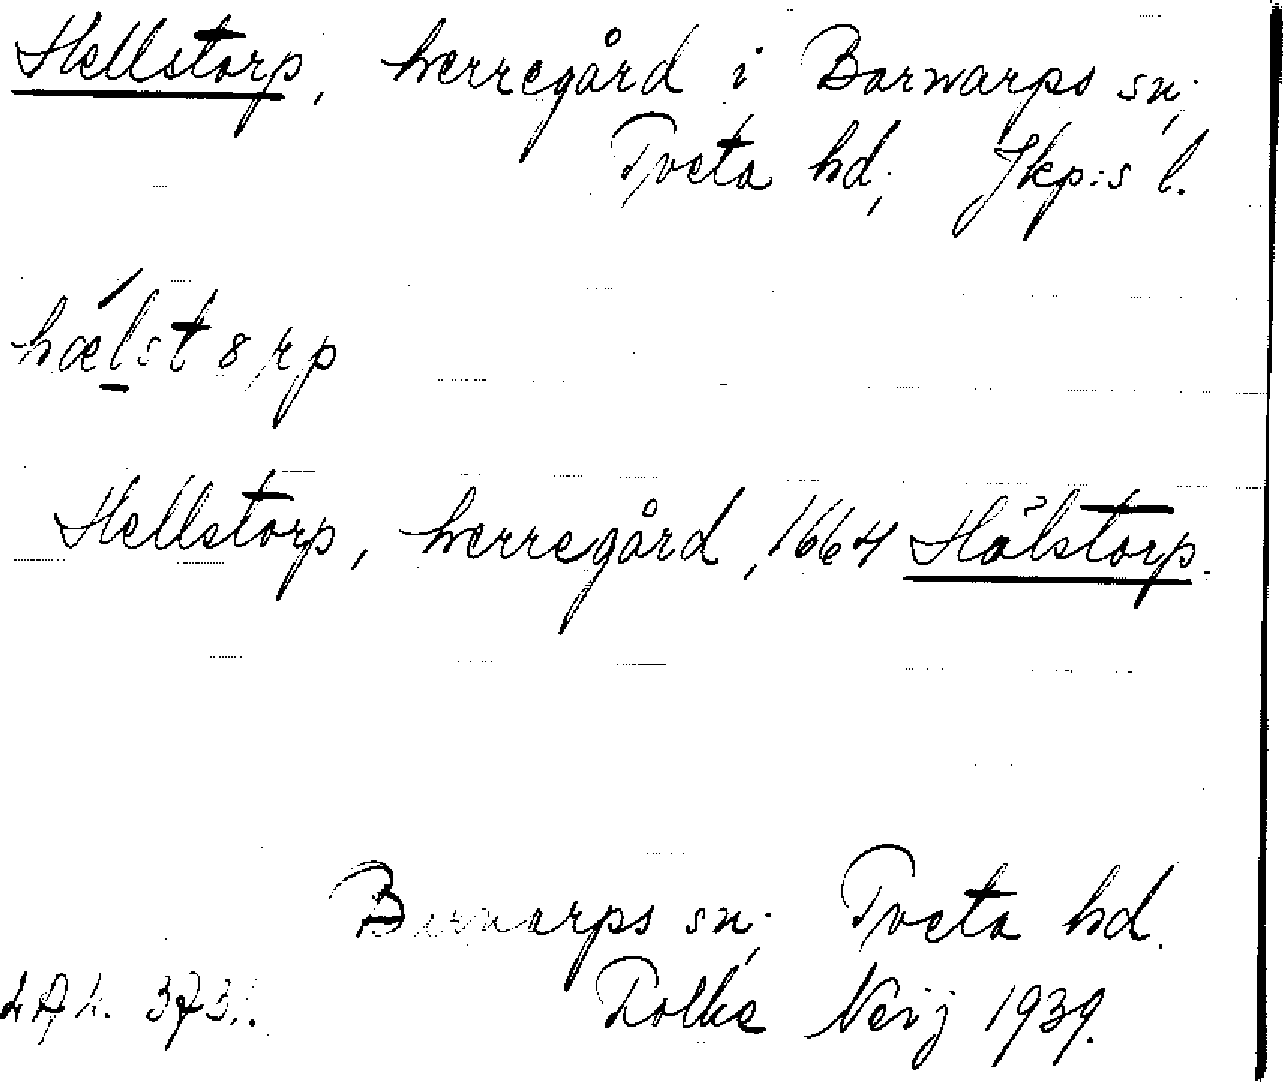 Hellstorp, herregård i Barnarps sn;
Tveta hd; Jkp:s l.
hælstorp
Hellstorp, herregård, 1664 Hålstorp.
Barnarps sn; Tveta hd.
Folke Neij 1939.